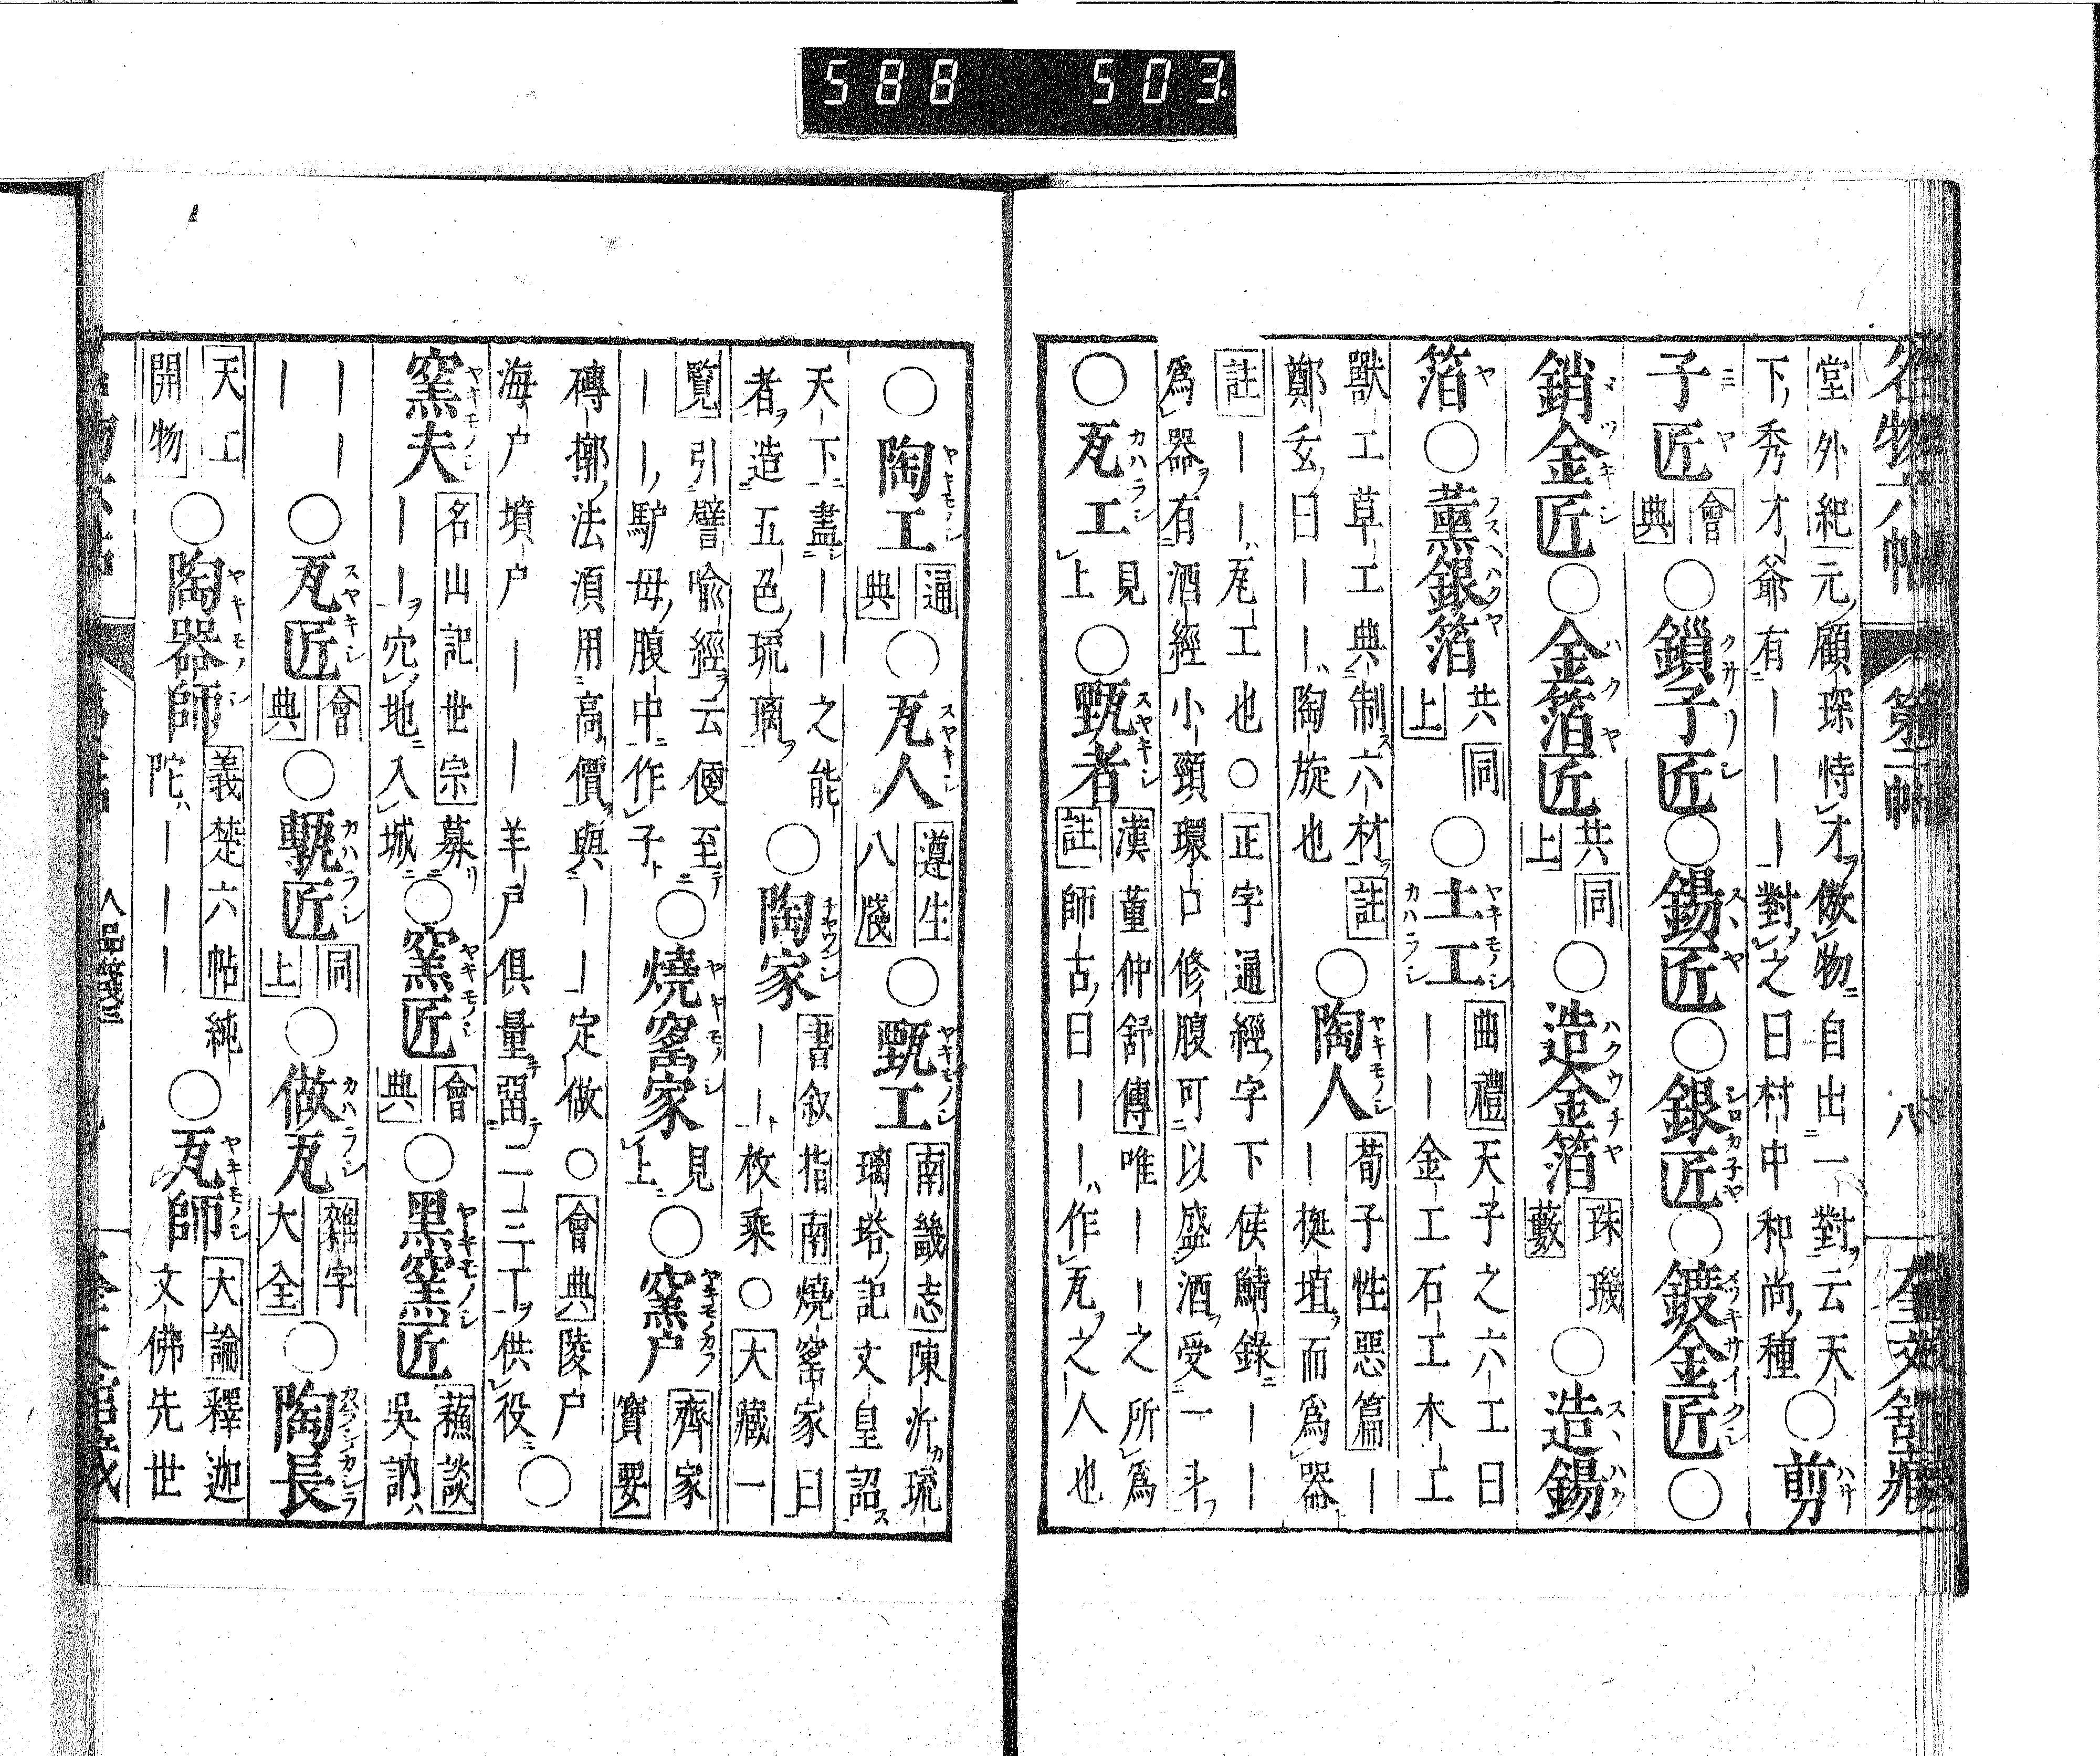 588 503
名物六帖 第二帖 八 奎文舘藏
堂外紀 元顧琛恃才傲物自出一對云天
下秀才爺有ーーーー對之曰村中和尚種
○剪
子匠 會典 ○鎖子匠○錫匠○銀匠○鍍金匠○
銷金匠○金箔匠 共同上 ○造金箔 珠璣藪 ○造錫
箔○薰銀箔 共同上 ○土工 曲禮 天子之六工曰
ーー金工石工木工
獸工草工典制六材 註
鄭玄曰ーー陶旋也
○陶人 荀子性惡篇ー
ー挻埴而爲器
註 ーー瓦工也○正字通經字下侯鯖錄ーー
爲器有酒經小頸環口修腹可以盛酒受一斗
○瓦工 見上 ○甄者 漢董仲舒傳 唯ーー之所爲
註 師古曰ーー作瓦之人也
○陶工 通典 ○瓦人 遵生八牋 ○甄工 南畿志 陳沂琉
璃塔記文皇詔
天下盡ーー之能
者造五色琉璃
○陶家 書叙指南 燒窰家曰
ーー枚乘○大藏一
覧 引譬喩經云便至
ーー驢母腹中作子
○燒窰家 見上 ○窯户 齊家寶要
磚揶法須用高價與ーー定做○會典 陵户
海户墳户ーー羊户俱量畱二三丁供役
○
窯夫 名山記世宗 募
ーー穴地入城
○窯匠 會典 ○黑窯匠 蘓談
吳訥
ーー
ーー
○瓦匠 會典 ○甎匠 同上 ○做瓦 雜字大全 ○陶長
天工
開物
○陶器師 義楚六帖 純
陀ーーー
○瓦師 大論 釋迦
文佛先世